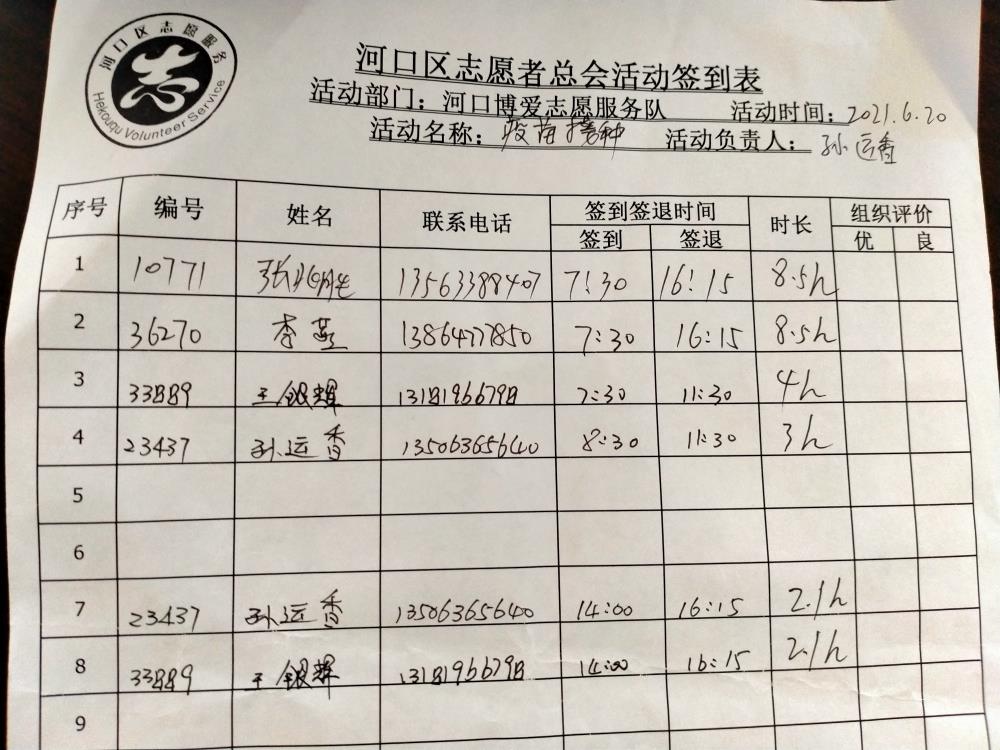 河口区志愿服务
Hekouqu Volunteer Service
河口区志愿者总会活动签到表
活动部门：河口博爱志愿服务队 活动时间：2021.6.20
活动名称：疫苗接种 活动负责人：孙运香
序号 编号 姓名 联系电话 签到签退时间 时长 组织评价
签到 签退 优 良
1 10771 13563388407 7:30 16:15 8.5h
2 36270 李燕 13864777850 7:30 16:15 8.5h
3 33889 王银辉 13181966798 7:30 11:30 4h
4 23437 孙运香 13506365640 8:30 11:30 3h
5
6
7 23437 孙运香 13506365640 14:00 16:15 2.1h
8 33889 王银辉 13181966798 14:00 16:15 2.1h
9